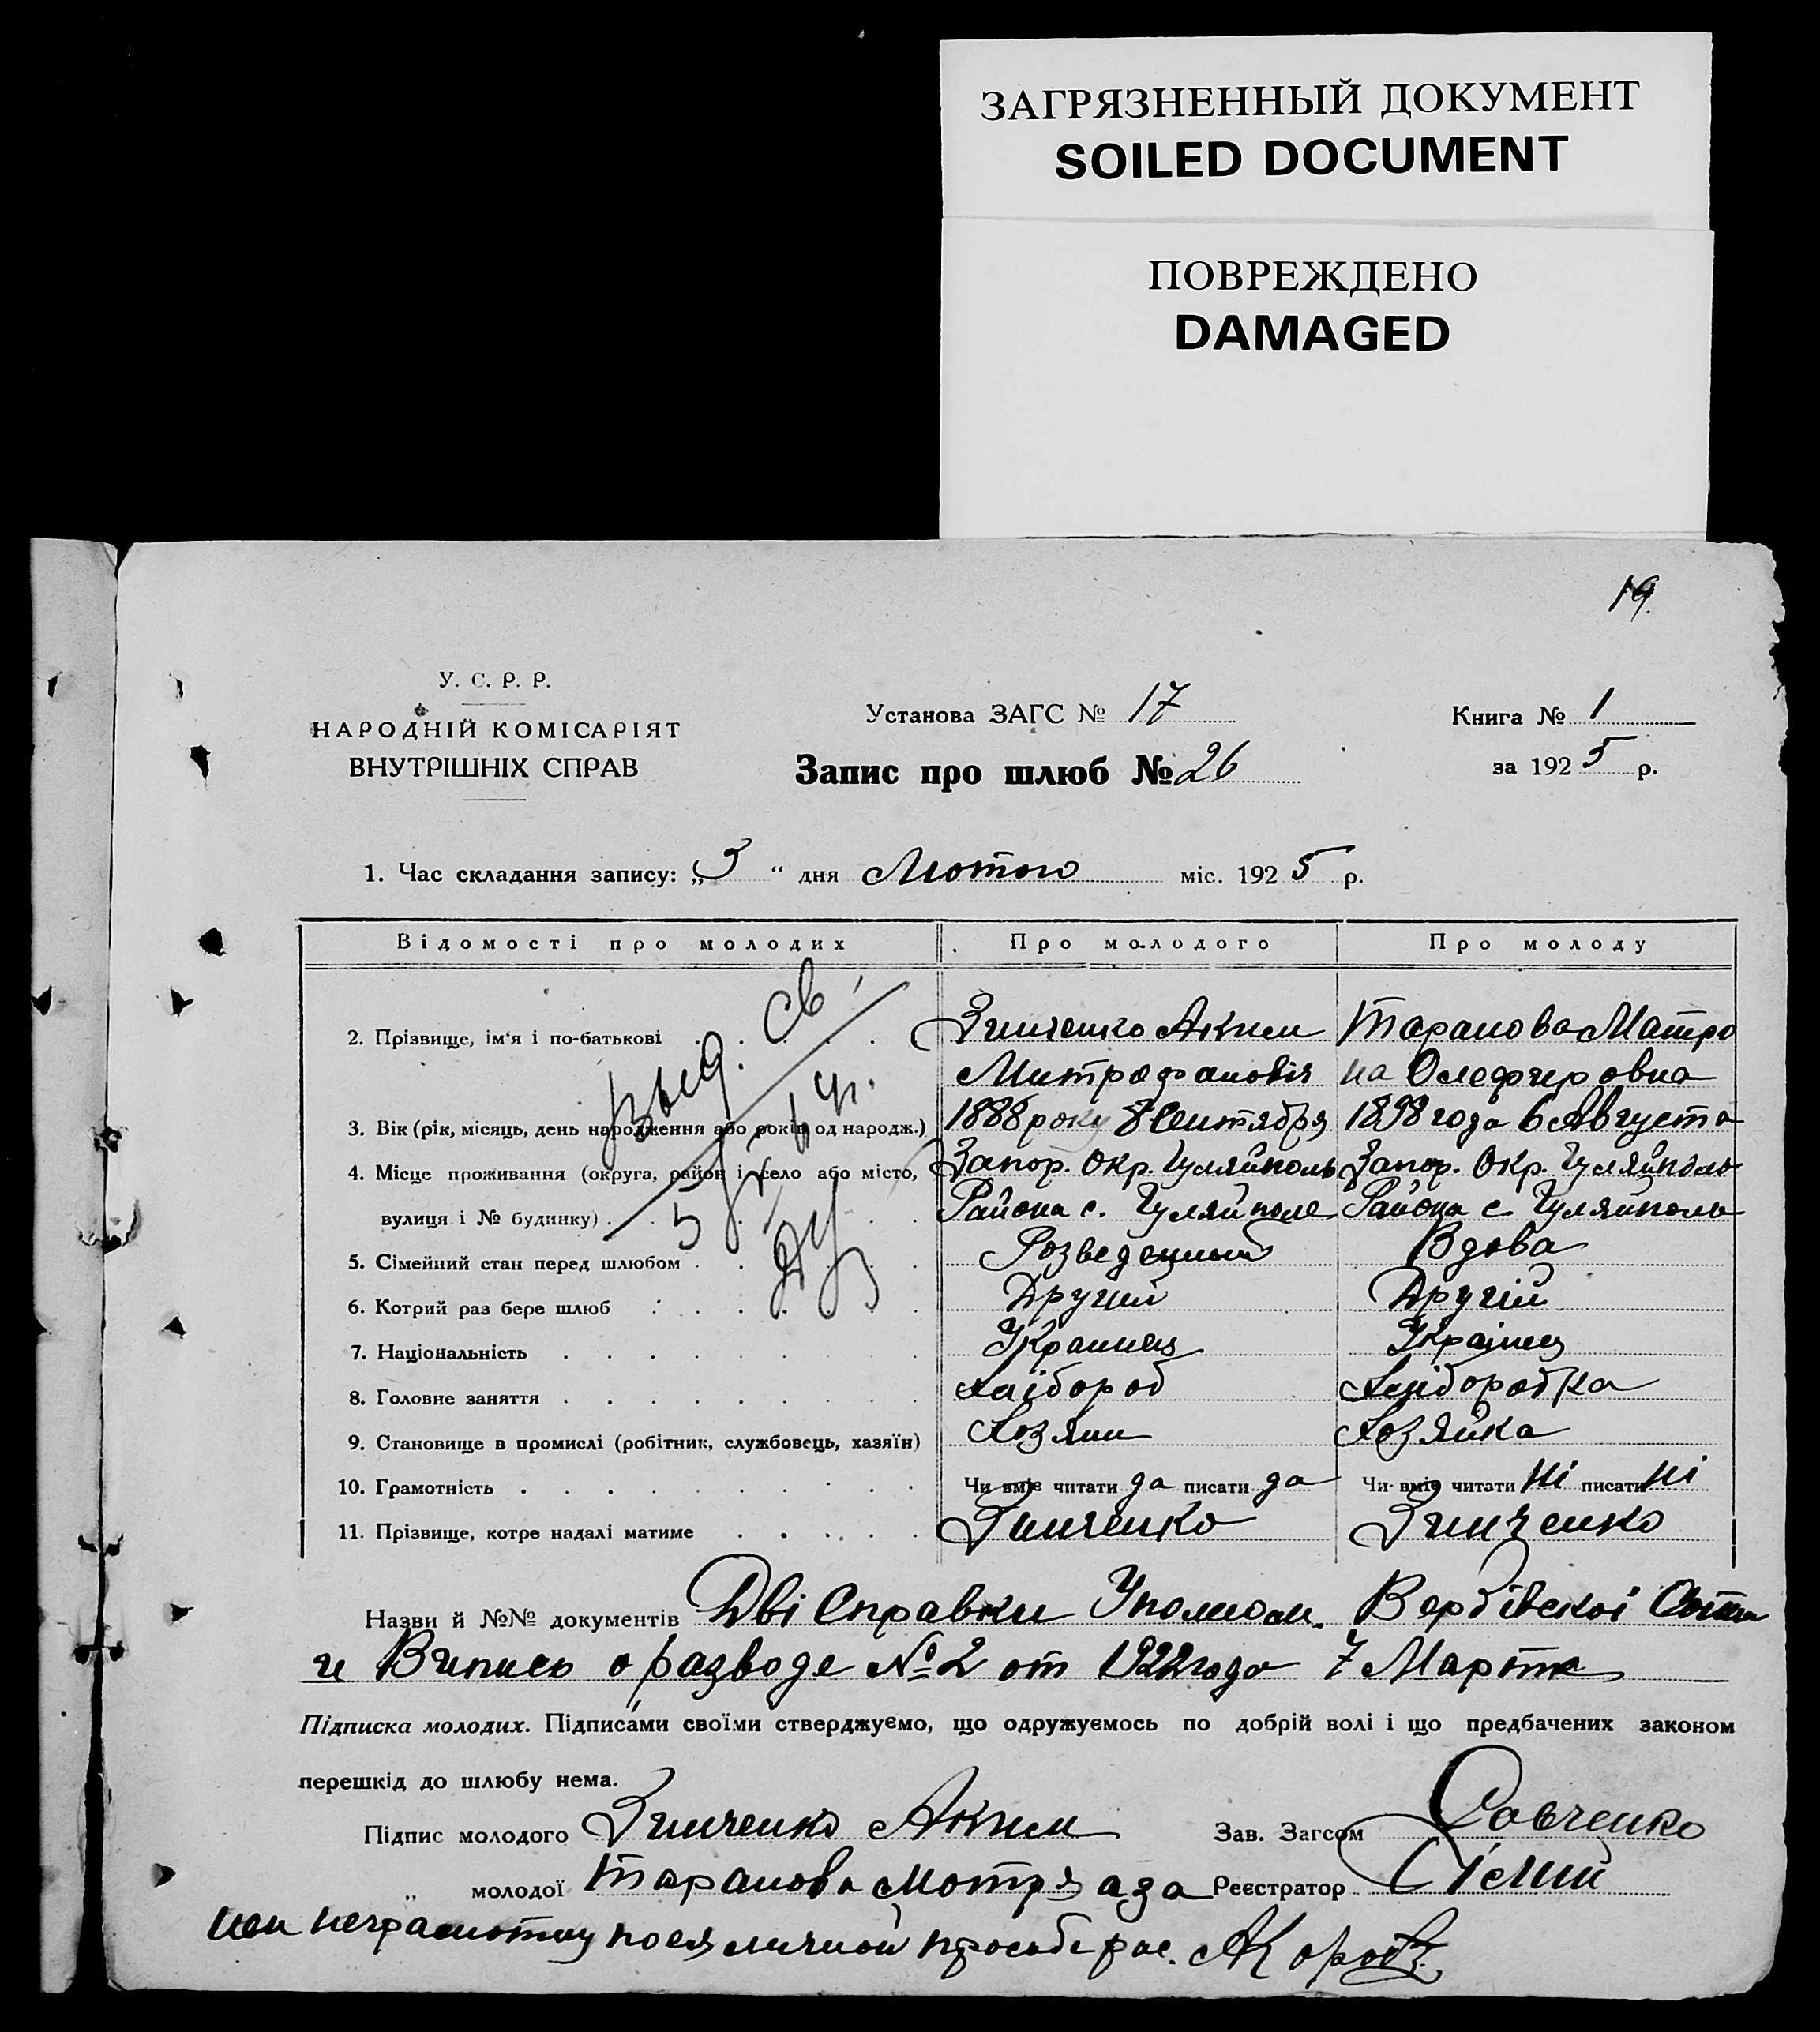 ЗАГРЯЗНЕННЫЙ ДОКУМЕНТ
SOILED DOCUMENT
ПОВРЕЖДЕНО
DAMAGED
19.
У. С. Р. Р.
НАРОДНІЙ КОМІСАРІЯТ
ВНУТРІШНІХ СПРАВ
Установа ЗАГС № 17
Запис про шлюб № 26
Книга № 1
за 1925 р.
1. Час складання запису: „3“ дня Лютого міс. 1925 р.
Відомості про молодих Про молодого Про молоду
выд. св.
2. Прізвище, ім'я і по-батькові Зинченко Аким Таранова Матро
Митрофановія на Олефировна
3. Вік (рік, місяць, день народження або років од народж.) 1888 року 8 Сентября 1898 года 6 Августа
4. Місце проживання (округа, район і село або місто, Запор. Окр. Гуляйполь Запор. Окр. Гуляйполь
вулиця і № будинку) Района с. Гуляйполе Района с. Гуляйполь
5. Сімейний стан перед шлюбом Розведенный Вдова
6. Котрий раз бере шлюб Другий Другій
7. Національність Украинец Українец
8. Головне заняття Хлібороб Хліборобка
9. Становище в промислі (робітник, службовець, хазяїн) Хозяин Хозяйка
10. Грамотність Чи вміє читати да писати да Чи вміє читати ні писати ні
11. Прізвище, котре надалі матиме Зинченко Зинченко
Назви й №№ документів Дві Справки Уполном. Вербівскоі
и Випись о разводе № 2 от 1922 года 7 Марта
Підписка молодих. Підписами своїми стверджуємо, що одружуємось по добрій волі і що предбачених законом
перешкід до шлюбу нема.
Підпис молодого Зинченко Аким Зав. Загсом Савченко
„ молодої Таранова Мотря а за Реєстратор
неграмотну по ея личной просьбе рос.